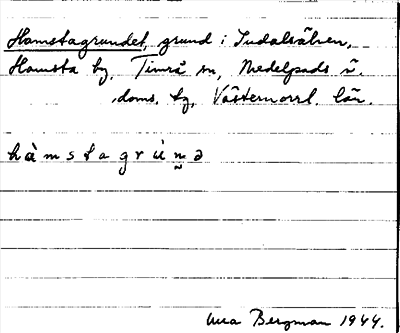 Hamstagrundet, grund i Indalsälven,
Hamsta by, Timrå sn, Medelpads v.
doms. tg, Västernorrl. län.
hàmstagrùn̰ə
Bergman 1944.